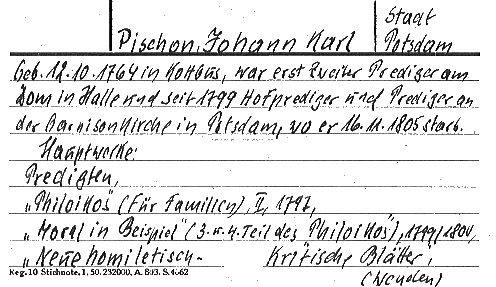 Stadt
Pischon, Johann Karl Potsdam
Geb. 12.10.1764 in Kottbus, war erst zweiter Prediger am
Dom in Halle und seit 1799 Hofprediger und Prediger an
der Garnisonkirche in Potsdam, wo er 16.11.1805 starb.
Hauptwerke:
Predigten,
„Philoikos" (Für Familien), II, 1797,
„Moral in Beispiel" (3. u. 4. Teil des Philoikos"), 1799/1800,
„Neue homiletisch- Kritische Blätter,
Reg. 10 Stichnote, 1, 50. 232000, A. 803. S. 4662